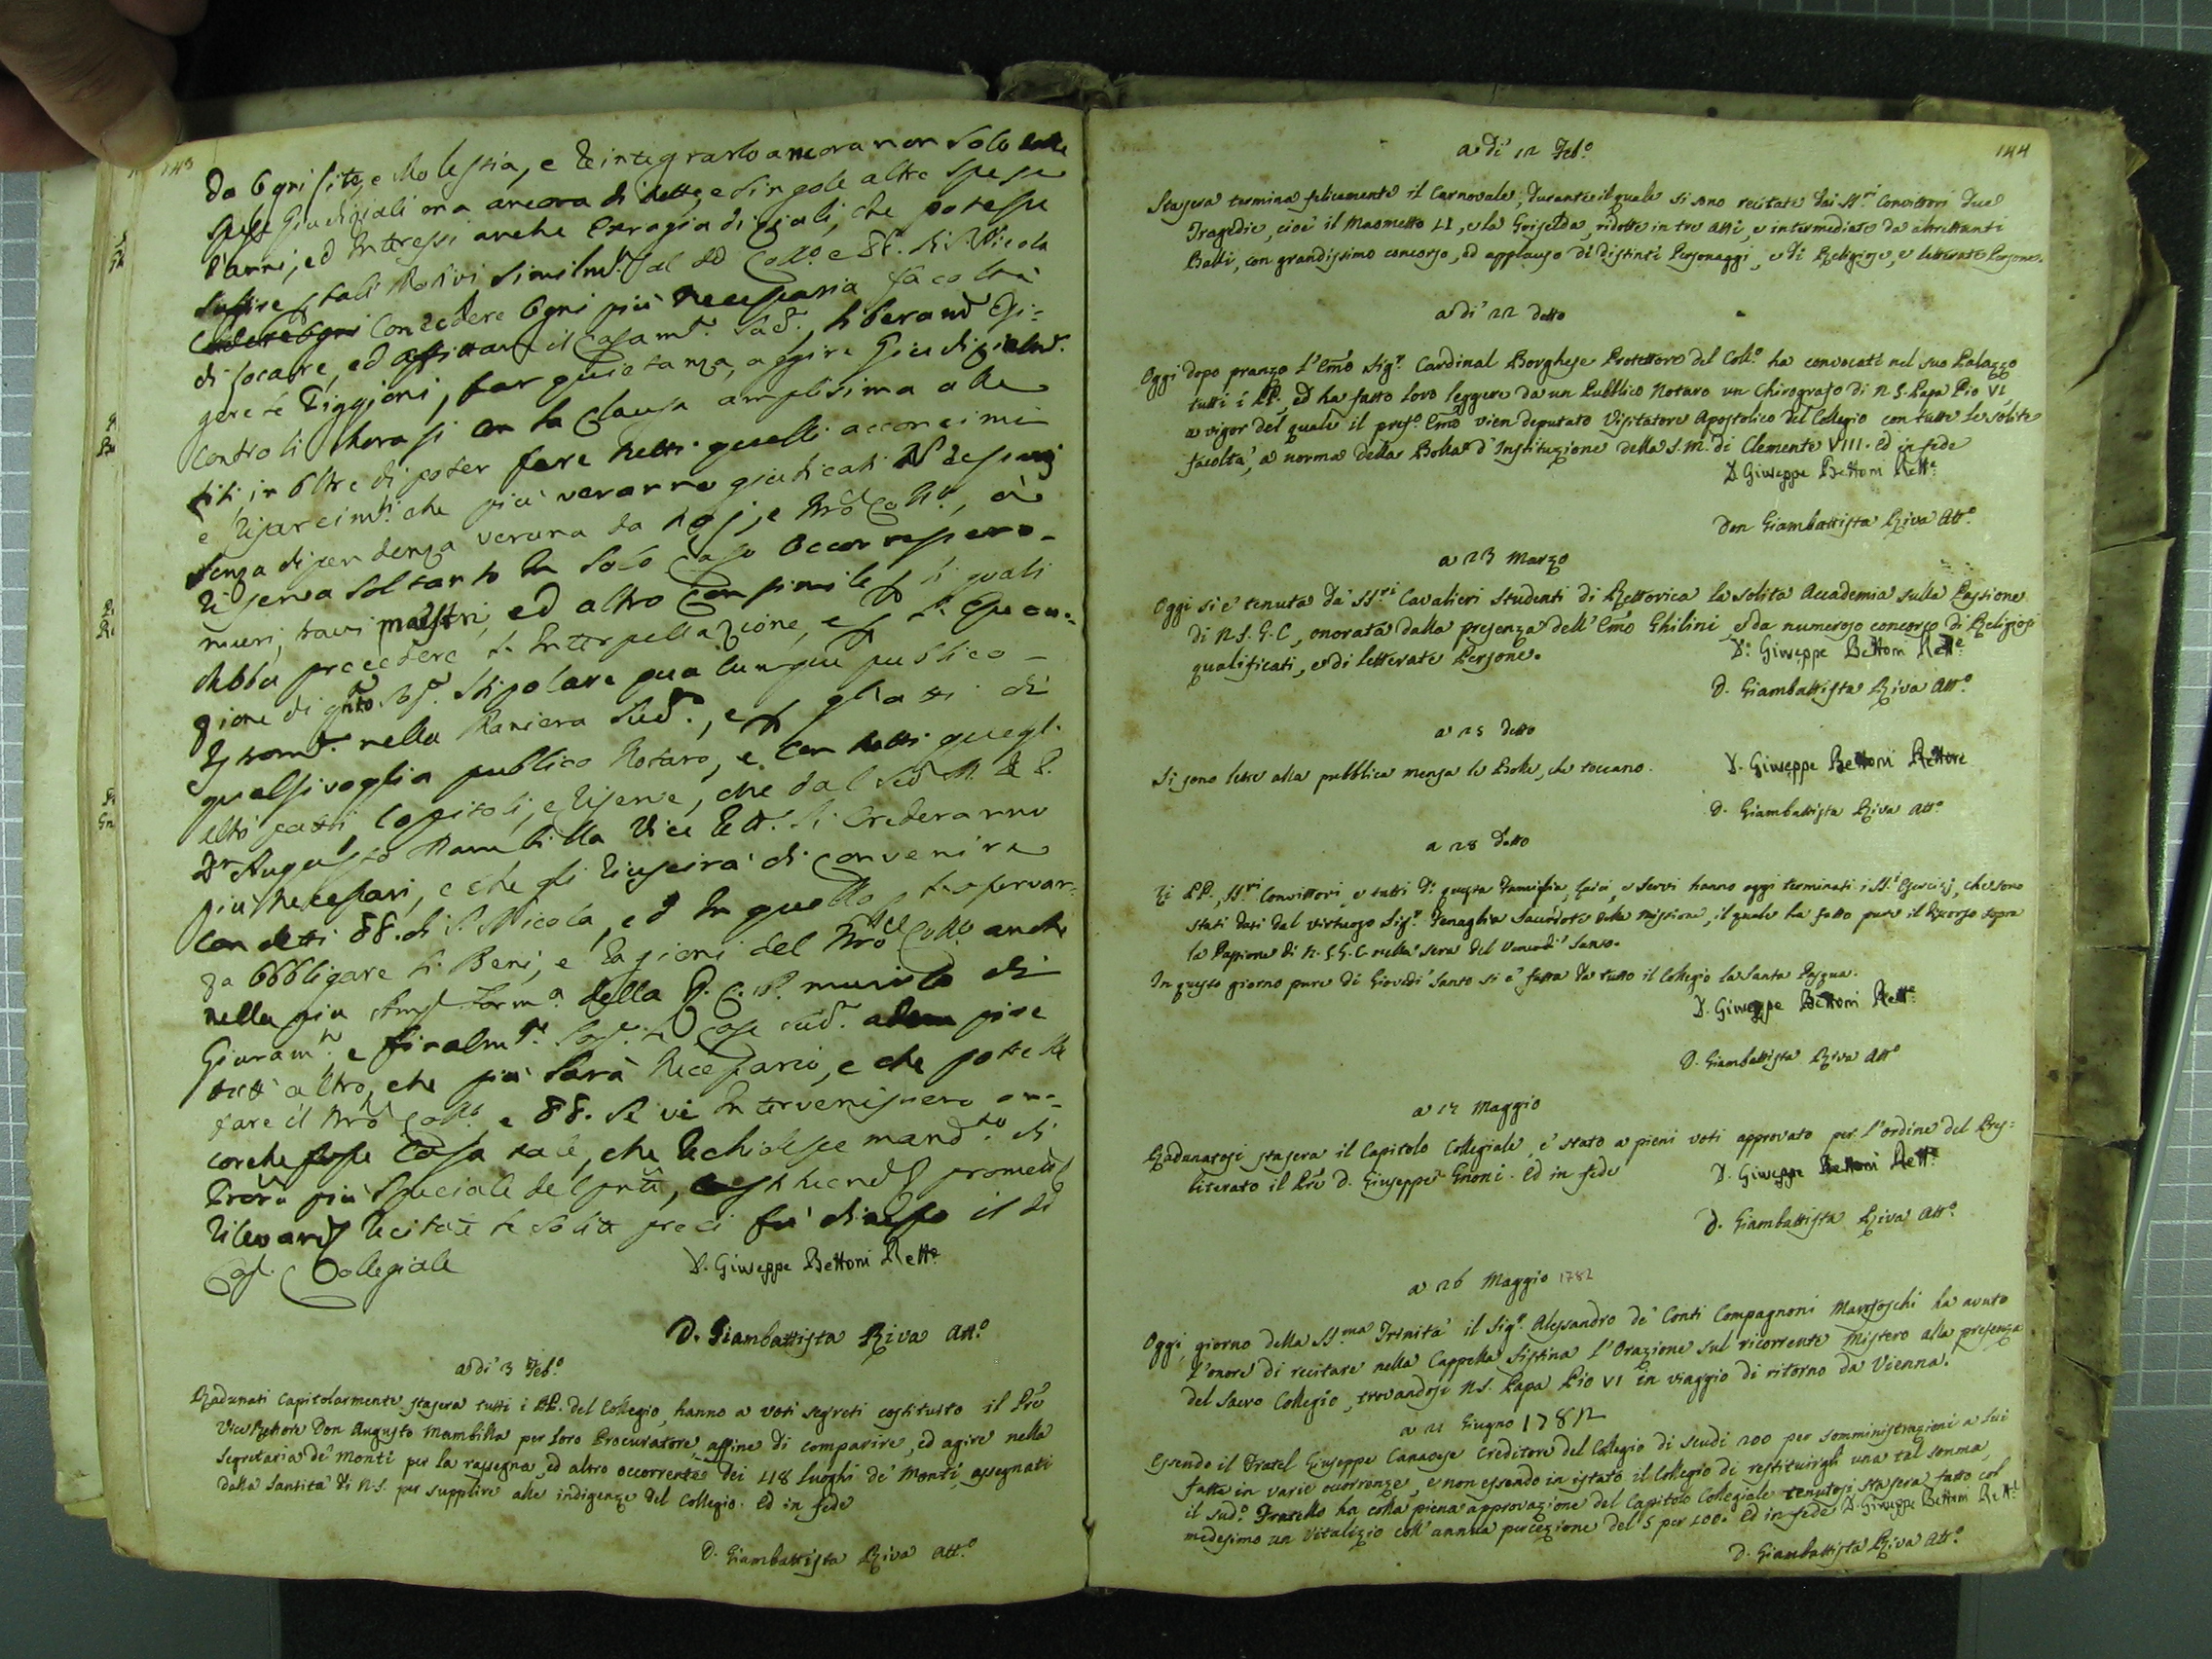 143
Da Ogni lite, e Molestia, e reintegrarlo ancora non solo delle
spese Giudiziali ma ancora di tutte, e singole altre spese
Danni, ed Interessi anche Extragiudiziali, che potesse
soffrire tali Motivi similm.
Concedere Ogni più necessaria facoltà
di locare, ed affittare il Casam. sud., liberam. esi-
gere le Piggioni, far quietanza, aggire Giudizialm.
contro li Morosi con la Clausa amplissima alle
liti, in Oltre di poter fare tutti quelli acconcimi
e risarcim.ti che più verranno giudicati
senza dipendenza veruna da
riserva soltanto in solo Caso Occorressero
muri, travi maestri, ed altro Consimile li quali
debba precedere l'Interpellazione, e
gione di Stipolare qualunque publico
Istrom. nella Maniera Sud., e gli atti di
qualsivoglia publico Notaro, e con tutti quegl.
altri patti, Capitoli, e riserve, che dal Sud. M. R. P.
D. Augusto Mambilla Vice Rett. si crederanno
più necessari, e che gli riuscirà di convenire
con detti di S. Nicola, ed In quello
da Obbligare li Beni, e ragioni del Nro Coll. anche
nella più forma della R. C. A. munita di
Giuram.to e finalm.te
tutt'altro, che più sarà necessario, e che potesse
fare il Nro Coll. e se vi Intervenissero an-
corche fosse Cosa tale, che richiedesse mand.to di
Procura più speciale del pnte,
recitate le solite preci fu dimesso il di
Cap. Collegiale
D. Giuseppe Bettoni Rett.e
D. Giambattista Riva Att.o
a di 3 Feb.o
Radunati Capitolarmente stasera tutti i PP. del Collegio, hanno a voti segreti costituito il Pre
Vice Rettore Don Augusto Mambilla per loro Procuratore affine di comparire, ed agire nella
Segretaria de' Monti per la rassegna, ed altro occorrente dei 48 luoghi de' Monti, assegnati
dalla Santità di N.S. per supplire alle indigenze del Collegio. Ed in fede
D. Giambattista Riva Att.o
144
a di 12 Feb.o
Stasera termina felicemente il Carnovale; durante il quale si sono recitate dai SS.ri Convittori due
Tragedie, cioè il Maometto II, e la Griselda, ridotte in tre atti, e intermediate da altrettanti
Balli, con grandissimo concorso, ed applauso di distinti Personaggi, e di Religiose, e letterate Persone.
a di 22 detto
Oggi dopo pranzo l'Emo Sig.r Cardinal Borghese Protettore del Coll.o ha convocati nel suo Palazzo
tutti i PP. ed ha fatto loro leggere da un Pubblico Notaro un Chirografo di N.S. Papa Pio VI,
a vigor del quale il pref.o Emo vien deputato Visitatore Apostolico del Collegio con tutte le solite
facoltà, a norma della Bolla d'Instituzione della S.M. di Clemente VIII. Ed in fede
D. Giuseppe Bettoni Rett.e
Don Giambattista Riva Att.o
a 23 Marzo
Oggi si è tenuta da' SS.ri Cavalieri Studenti di Rettorica la solita Accademia sulla Passione
di N.S. G.C., onorata dalla presenza dell'Emo Ghilini, e da numeroso concorso di Religiosi
qualificati, e di letterate Persone.
D. Giuseppe Bettoni Rett.e
D. Giambattista Riva Att.o
a 25 detto
Si sono lette alla pubblica mensa le Bolle, che toccano.
D. Giuseppe Bettoni Rettore
D. Giambattista Riva Att.o
a 28 detto
Li PP., SS.ri Convittori, e tutti di questa Famiglia, laici, e servi hanno oggi terminati i SS.i Esercizj, che sono
stati dati dal virtuoso Sig.r Tenaglia Sacerdote della Missione, il quale ha fatto pure il discorso sopra
la Passione di N.S.G.C. nella sera del Venerdì Santo.
In questo giorno pure di Giovedì Santo si è fatta da tutto il Collegio la Santa Pasqua.
D. Giuseppe Bettoni Rett.e
D. Giambattista Riva Att.o
a 17 Maggio
Radunatosi stasera il Capitolo Collegiale, è stato a pieni voti approvato per l'ordine del Pres-
biterato il Pre D. Giuseppe Gnoni. Ed in fede
D. Giuseppe Bettoni Rett.e
D. Giambattista Riva Att.o
a 26 Maggio 1782
Oggi, giorno della SS.ma Trinità il Sig.r Alessandro de' Conti Compagnoni Marefoschi ha avuto
l'onore di recitare nella Cappella Sistina l'Orazione sul ricorrente Mistero alla presenza
del Sacro Collegio, trovandosi N.S. Papa Pio VI in viaggio di ritorno da Vienna.
a 21 Giugno 1782
Essendo il Fratel Giuseppe Canavese Creditore del Collegio di scudi 200 per somministrazioni a lui
fatte in varie occorrenze, e non essendo in istato il Collegio di restituirgli una tal somma,
il sud.o Fratello ha colla piena approvazione del Capitolo Collegiale tenutosi stasera fatto col
medesimo un Vitalizio coll'annua percezione del 5 per 100. Ed in fede D. Giuseppe Bettoni Rett.e
D. Giambattista Riva Att.o